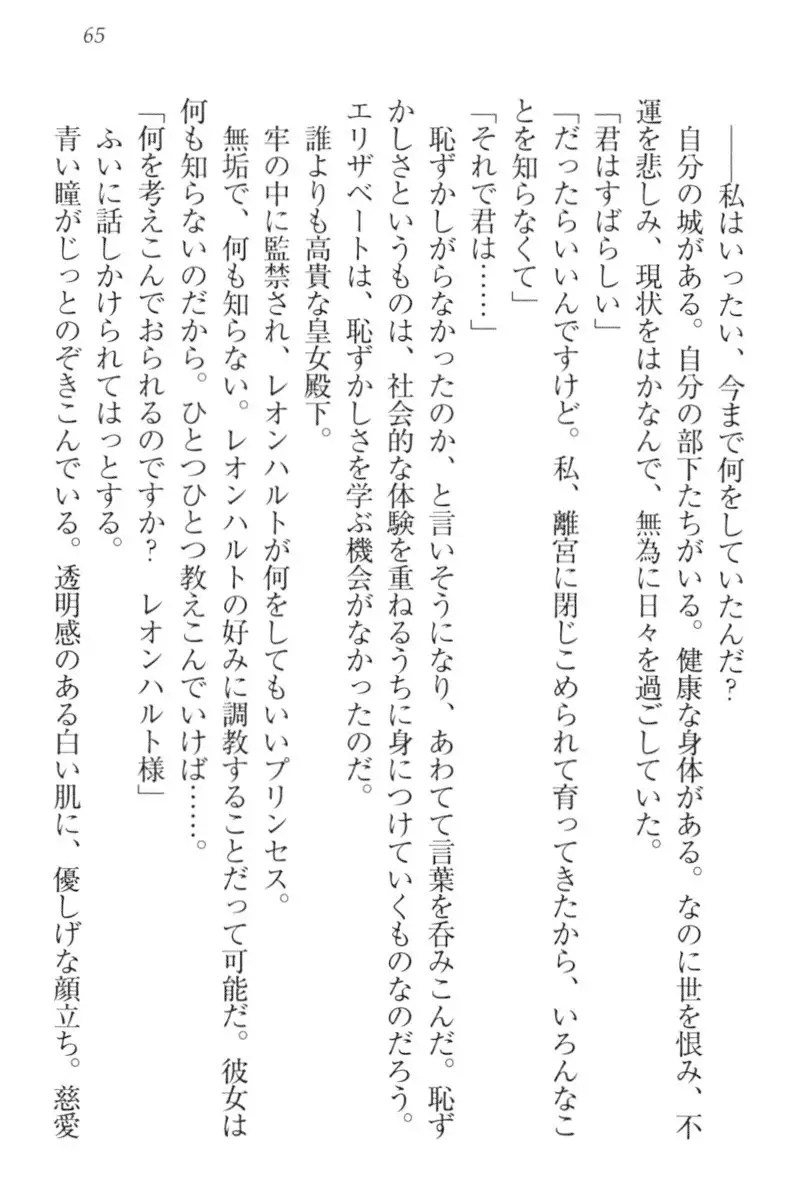 65
――私はいったい、今まで何をしていたんだ？
自分の城がある。自分の部下たちがいる。健康な身体がある。なのに世を恨み、不
運を悲しみ、現状をはかなんで、無為に日々を過ごしていた。
「君はすばらしい」
「だったらいいんですけど。私、離宮に閉じこめられて育ってきたから、いろんなこ
とを知らなくて」
「それで君は……」
恥ずかしがらなかったのか、と言いそうになり、あわてて言葉を呑みこんだ。恥ず
かしさというものは、社会的な体験を重ねるうちに身につけていくものなのだろう。
エリザベートは、恥ずかしさを学ぶ機会がなかったのだ。
誰よりも高貴な皇女殿下。
牢の中に監禁され、レオンハルトが何をしてもいいプリンセス。
無垢で、何も知らない。レオンハルトの好みに調教することだって可能だ。彼女は
何も知らないのだから。ひとつひとつ教えこんでいけば……。
「何を考えこんでおられるのですか？　レオンハルト様」
ふいに話しかけられてはっとする。
青い瞳がじっとのぞきこんでいる。透明感のある白い肌に、優しげな顔立ち。慈愛